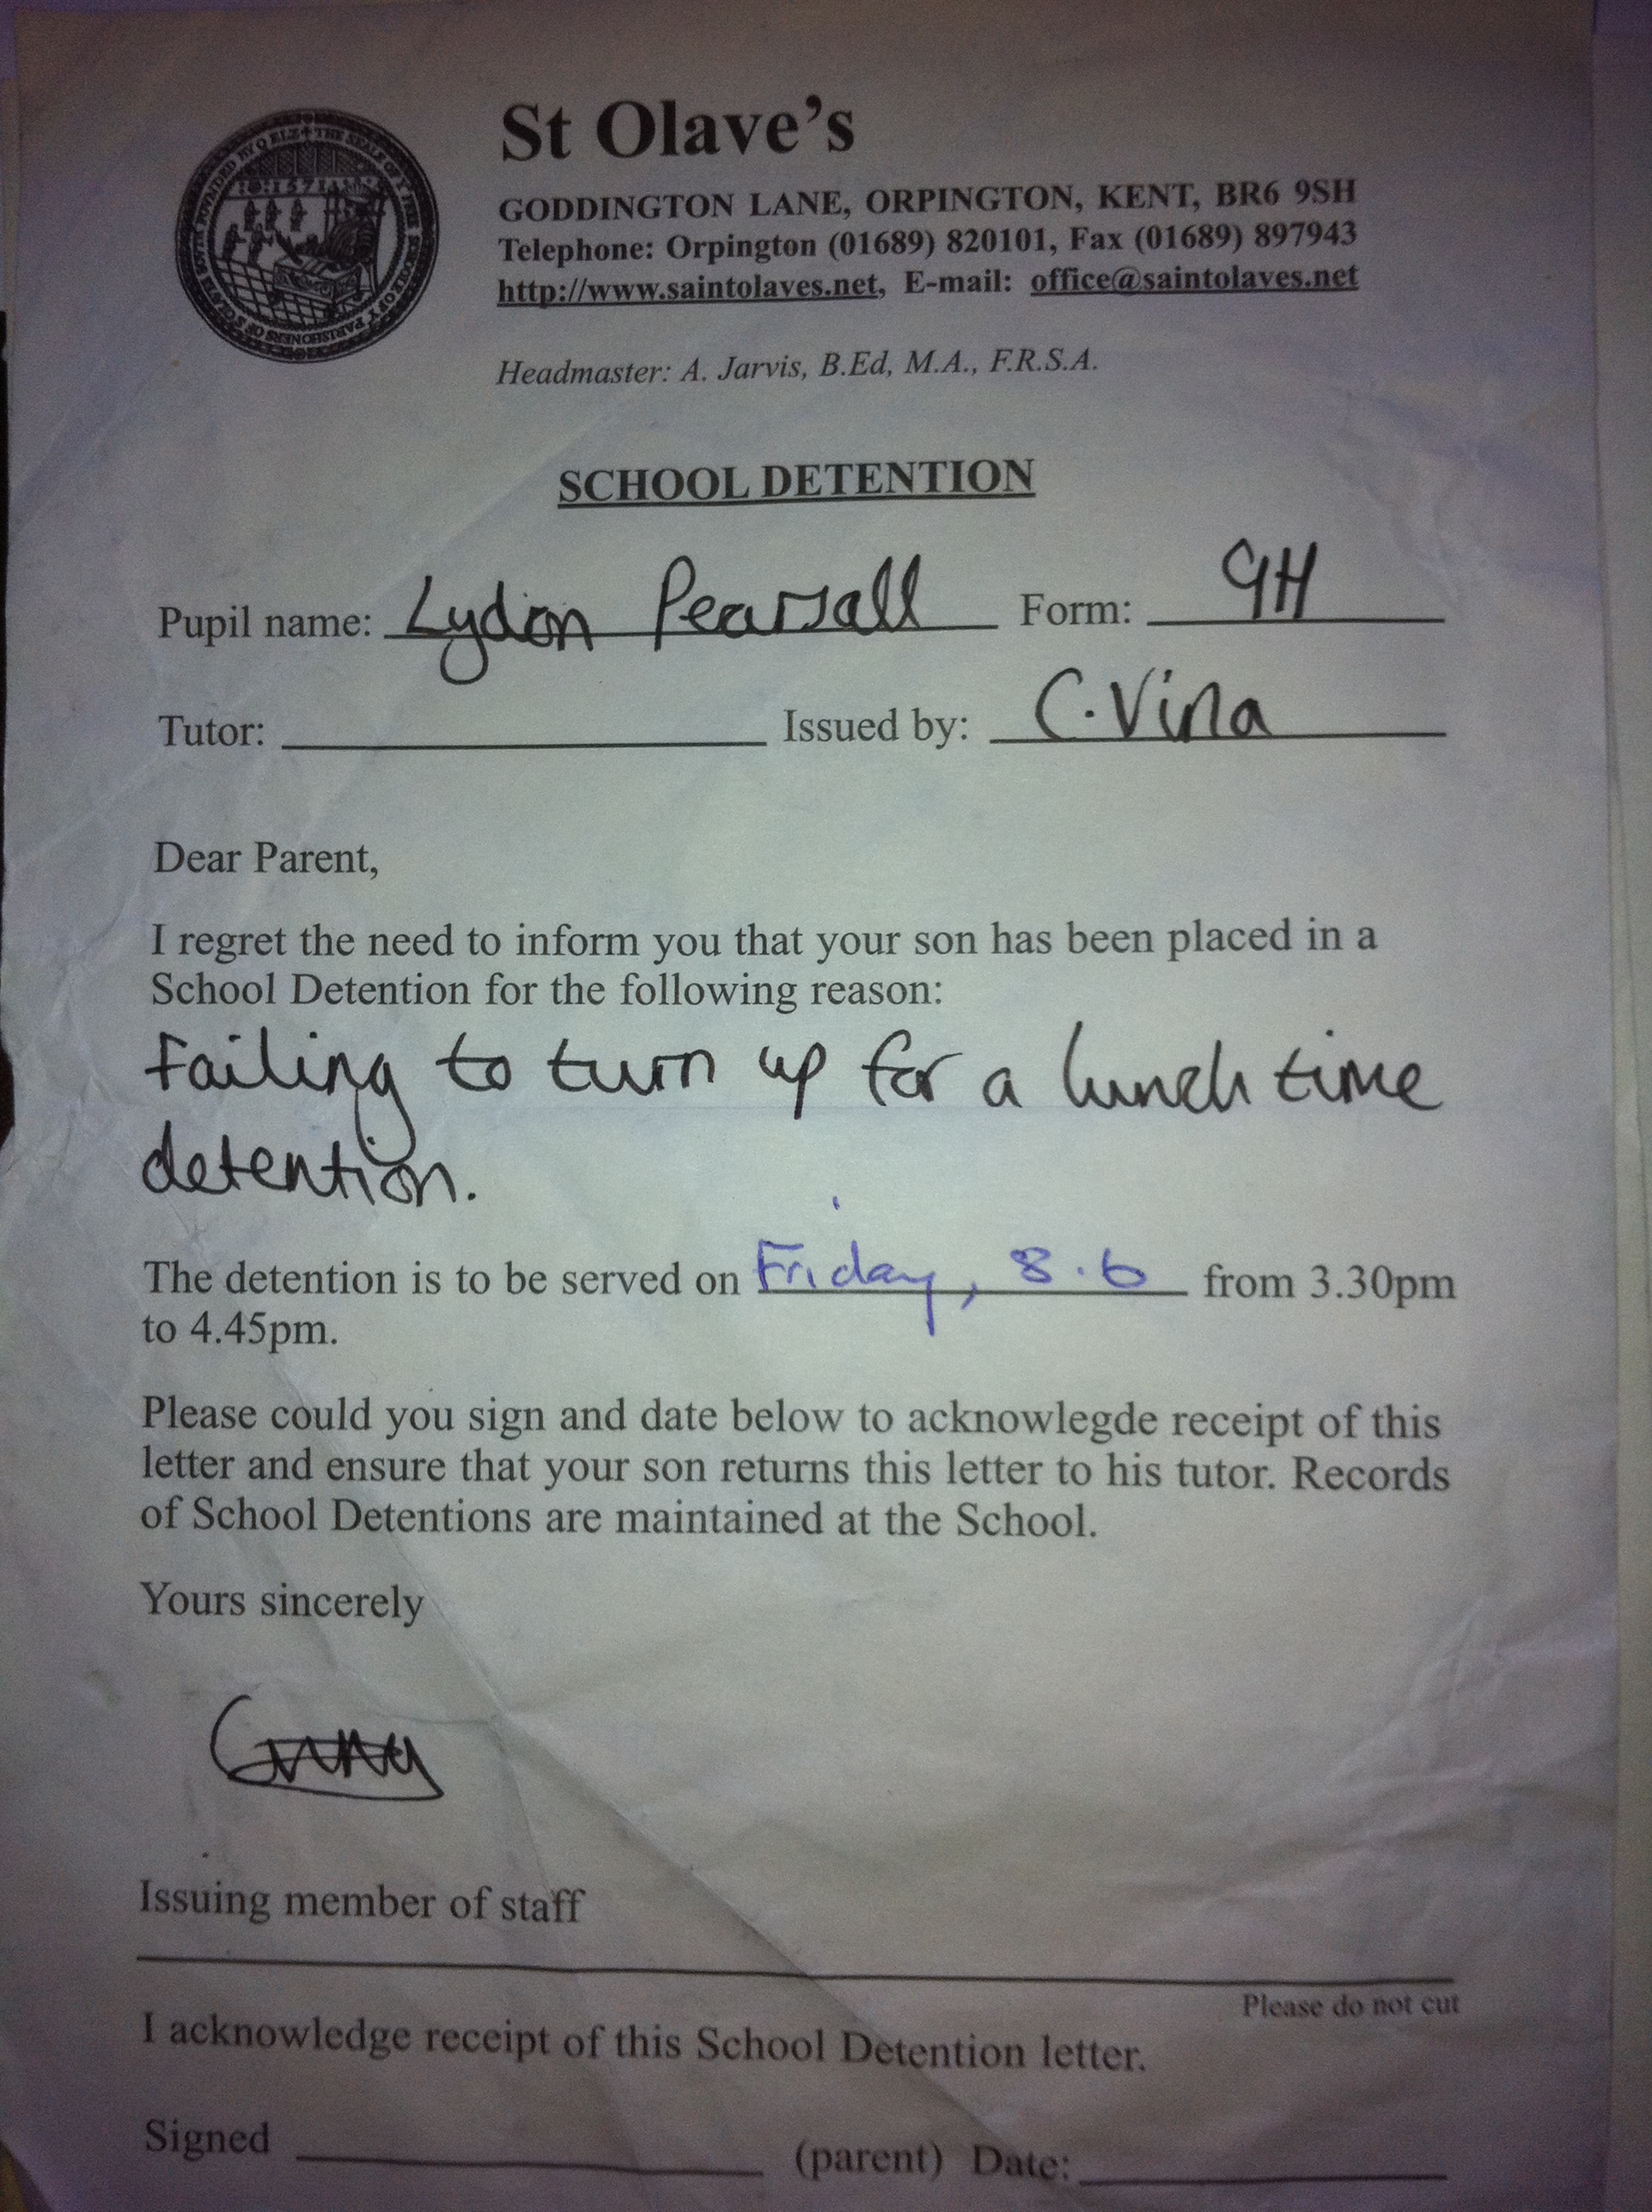 St Olave's
GODDINGTON LANE, ORPINGTON, KENT, BR6 9SH
Telephone: Orpington (01689) 820101, Fax (01689) 897943
http://www.saintolaves.net, E-mail: office@saintolaves.net
Headmaster: A. Jarvis, B.Ed, M.A., F.R.S.A.
SCHOOL DETENTION
Pupil name: Lydon Pearsall Form: 9H
Tutor: Issued by: C. Vina
Dear Parent,
I regret the need to inform you that your son has been placed in a
School Detention for the following reason:
Failing to turn up for a lunch time
detention.
The detention is to be served on Friday, 8.6 from 3.30pm
to 4.45pm.
Please could you sign and date below to acknowlegde receipt of this
letter and ensure that your son returns this letter to his tutor. Records
of School Detentions are maintained at the School.
Yours sincerely
Issuing member of staff
Please do not cut
I acknowledge receipt of this School Detention letter.
Signed (parent) Date: